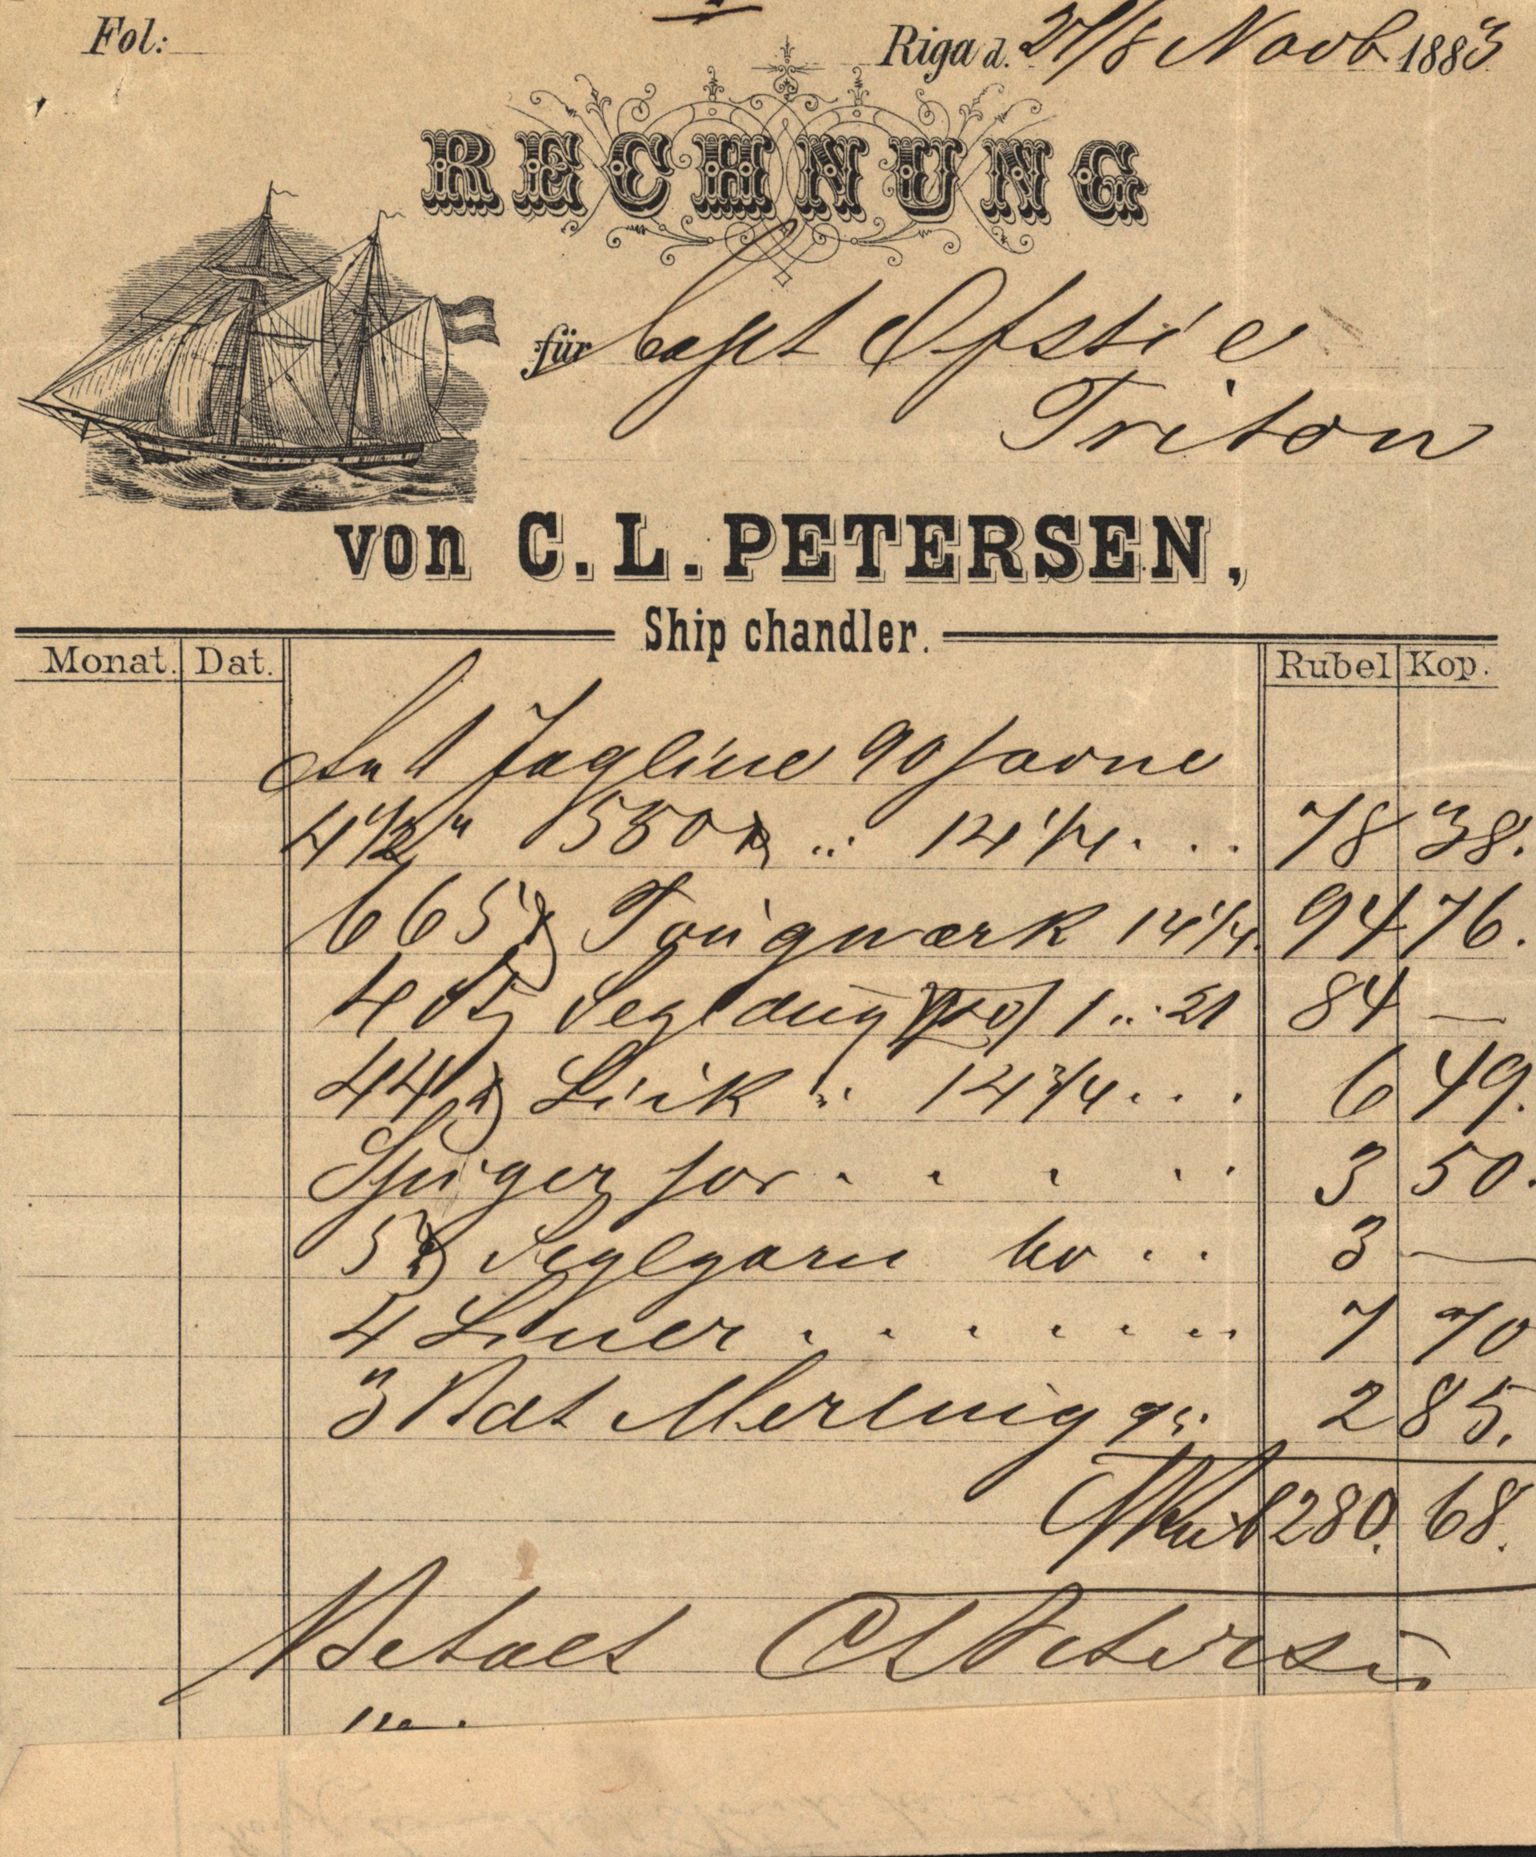 Fol:
Riga d. 27/8 Novb 1883
RECHNUNG
für Capt Ofstie
Triton
von C. L. PETERSEN,
Ship chandler.
Monat. Dat. Rubel Kop.
1 Jagline 90 favne
4 1/2" 550 14 1/4 . . . 78 38.
665 Tougværk 14 1/4. 94 76.
4 Segldug 1 21 84 —
44 Liik 14 3/4 . . . 6 49.
Spiger for . . . . . 3 50.
5 Seglgarn 60 . . 3 —
4 Liner . . . . . . . 7 70
3 Merling 95. 2 85.
Rub 280. 68.
Betalt C L Petersen